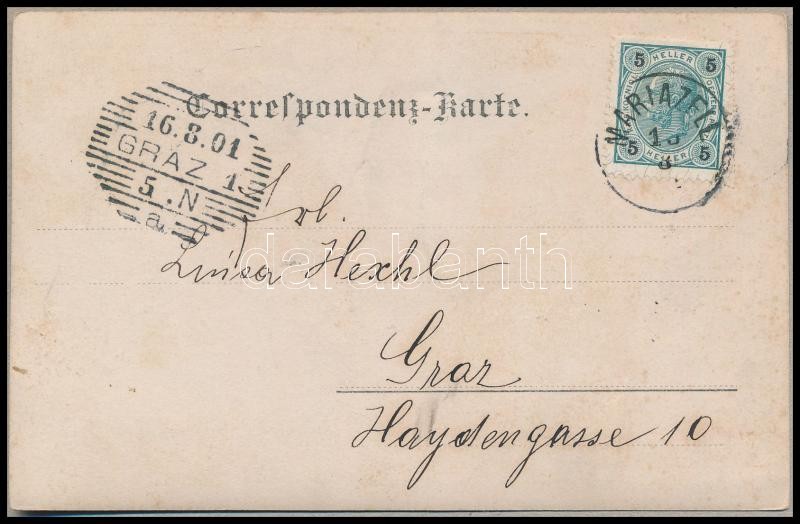 5 HELLER 5
MARIAZELL
5 HELLER 5
Correspondenz-Karte.
16.8.01
GRAZ 1
5.N
a
Frl.
Luisa Hexhl
darabanth
Graz
Haydengasse 10